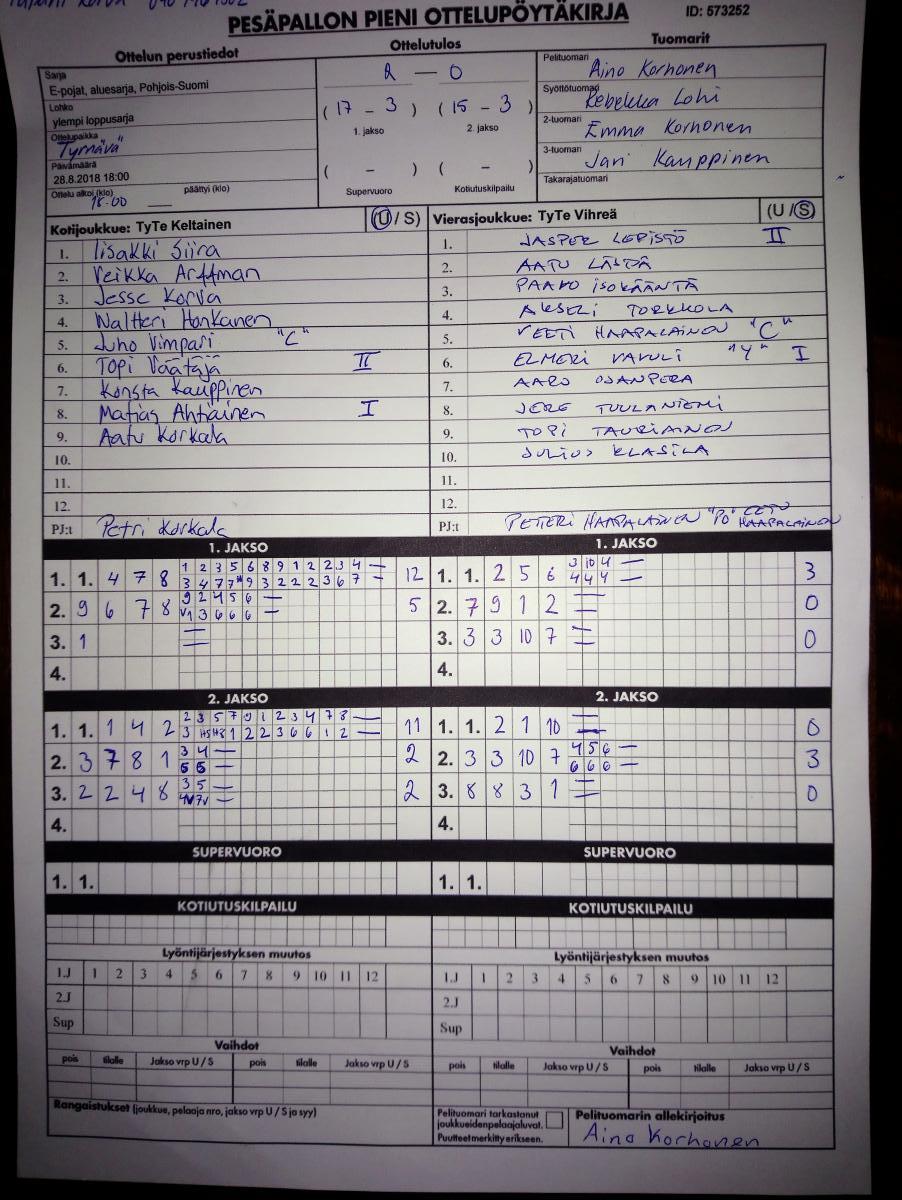 PESÄPALLON PIENI OTTELUPÖYTÄKIRJA
ID: 573252
Ottelun perustiedot
Ottelutulos
Tuomarit
Sarja
E-pojat, aluesarja, Pohjois-Suomi
Lohko
ylempi loppusarja
Ottelupaikka
"Tyrnävä"
Päivämäärä
28.8.2018 18:00
Ottelu alkoi (klo) päättyi (klo)
18.00
2 — 0
( 17 – 3 ) ( 15 – 3 )
1. jakso 2. jakso
( – ) ( – )
Supervuoro Kotiutuskilpailu
Pelituomari
Aino Korhonen
Syöttötuomari
Rebekka Lohi
2-tuomari
Emma Korhonen
3-tuomari
Jari Kauppinen
Takarajatuomari
Kotijoukkue: TyTe Keltainen (U / S)
1. Iisakki Siira
2. Veikka Arffman
3. Jesse Korva
4. Waltteri Honkanen
5. Juho Vimpari "C"
6. Topi Väätäjä II
7. Konsta Kauppinen
8. Matias Ahtiainen I
9. Aatu Korkala
10.
11.
12.
PJ:t Petri Korkala
Vierasjoukkue: TyTe Vihreä (U / S)
1. JASPER LEPISTÖ II
2. AATU
3. PAAVO ISOKÄÄNTÄ
4. AKSELI TORKKOLA
5. VEETI HAAPALAINEN "C"
6. ELMERI "Y" I
7. AARO OJANPERÄ
8. JERE TUULANIEMI
9. TOPI TAURIAINEN
10. JULIUS KLASILA
11.
12.
PJ:t PETTERI HAAPALAINEN "PÖ" EETU HAAPALAINEN
1. JAKSO
1. 1. 4 7 8 1 2 3 5 6 8 9 1 2 2 3 4 — 12
3 4 7 7 9 3 2 2 2 3 6 7 —
2. 9 6 7 8 9 2 4 5 6 — 5
V1 3 6 6 6 —
3. 1 =
4.
1. JAKSO
1. 1. 2 5 6 3 10 4 — 3
4 4 4 —
2. 7 9 1 2 = 0
3. 3 3 10 7 = 0
4.
2. JAKSO
1. 1. 1 4 2 2 3 5 7 9 1 2 3 4 7 8 — 11
3 1 2 2 3 6 6 1 2 —
2. 3 7 8 1 3 4 — 2
5 5 —
3. 2 2 4 8 3 5 — 2
4V 7V —
4.
2. JAKSO
1. 1. 2 1 10 = 0
2. 3 3 10 7 4 5 6 — 3
6 6 6 —
3. 8 8 3 1 = 0
4.
SUPERVUORO
1. 1.
SUPERVUORO
1. 1.
KOTIUTUSKILPAILU
KOTIUTUSKILPAILU
Lyöntijärjestyksen muutos
1.J 1 2 3 4 5 6 7 8 9 10 11 12
2.J
Sup
Lyöntijärjestyksen muutos
1.J 1 2 3 4 5 6 7 8 9 10 11 12
2.J
Sup
Vaihdot
pois tilalle Jakso vrp U / S pois tilalle Jakso vrp U / S
Vaihdot
pois tilalle Jakso vrp U / S pois tilalle Jakso vrp U / S
Rangaistukset (joukkue, pelaaja nro, jakso vrp U / S ja syy)
Pelituomari tarkastanut
joukkueiden pelaajaluvat.
Puutteet merkitty erikseen.
Pelituomarin allekirjoitus
Aino Korhonen